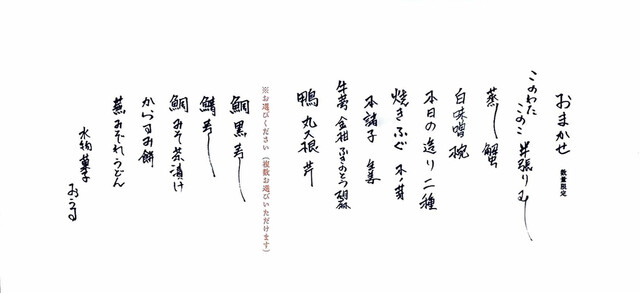 おまかせ 数量限定
このわた このこ 丼 張り むし
蒸し 蟹
白味噌 椀
本日の造り 二種
焼きふぐ 木ノ芽
本諸子 生姜
牛蒡 金柑 ふきのとう
鴨 丸大根 芹
※お選びください（複数お選びいただけます）
鯛 黒寿し
鯖寿し
鯛 みそ茶漬け
からすみ餅
蕪みぞれうどん
水物 菓子